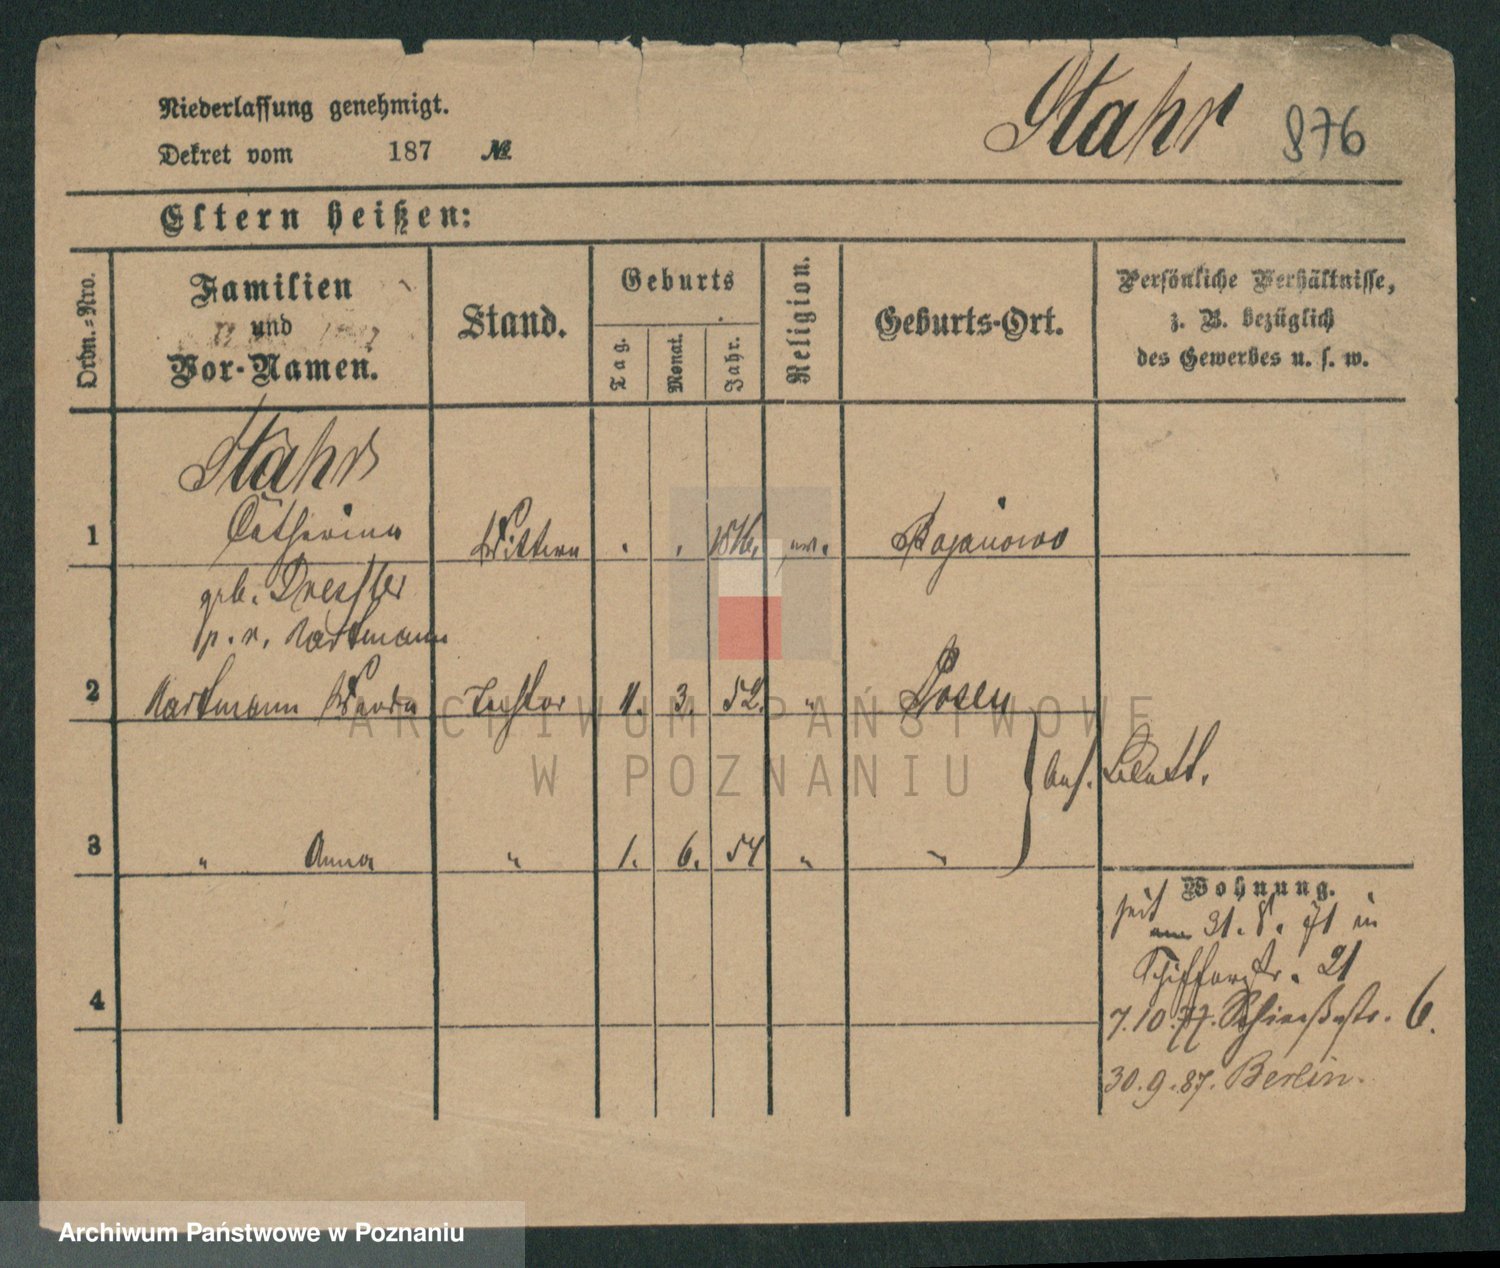 Niederlassung genehmigt.
Dekret vom 187 №
Stahr 876
Eltern heißen:
Ordn.-Nro.
Familien und Vor-Namen.
Stand.
Geburts
Tag.
Monat.
Jahr.
Religion.
Geburts-Ort.
Persönliche Verhältnisse,
z. B. bezüglich
des Gewerbes u. s. w.
Stahr
1 Catharina Wittwe 1816. ev. Bojanowo
geb. Dressler
Hartmann
2 Hartmann Wanda Tochter 11. 3. 52. " Posen
3 " Anna " 1. 6. 54 " "
Wohnung.
seit 31. 8. 71 in
Schifferstr. 21
4
7.10.77. Schiesstr. 6.
30.9.87. Berlin.
ARCHIWUM PAŃSTWOWE
W POZNANIU
Archiwum Państwowe w Poznaniu